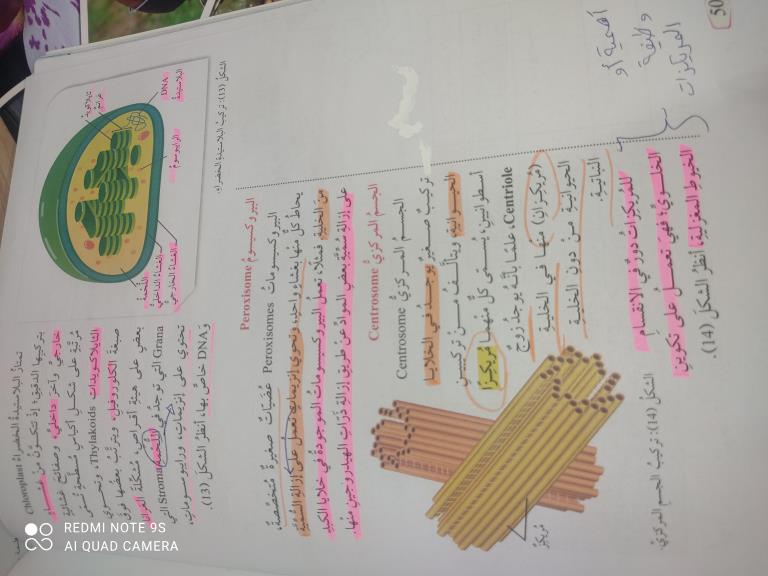 تمتازُ البلاستيدةُ الخضراءُ Chloroplast
بتركيبِها الدقيقِ؛ إذْ تتكوَّنُ منْ غشاءٍ
خارجيٍّ وآخرَ داخليٍّ، وصفائحَ غشائيةٍ
مُرتَّبةٍ على شكلِ أكياسٍ مسطَّحةٍ تُسمّى
الثايلاكويداتِ Thylakoids، وتحتوي
صبغةَ الكلوروفيل، ويترتَّبُ بعضُها فوقَ
بعضٍ على هيئةِ أقراصٍ، مُشكِّلةً الغرانا
Grana التي توجدُ في اللُّحْمةِ Stroma التي
تحتوي على إنزيماتٍ، ورايبوسوماتٍ،
وDNA خاصٍّ بها، أنظرُ الشكلَ (13).
ثايلاكويد
غرانا
DNA
البلاستيدةِ
الرايبوسوم
اللُّحْمةُ
الغشاءُ الداخليُّ
الغشاءُ الخارجيُّ
الشكلُ (13): تركيبُ البلاستيدةِ الخضراءِ.
البيروكسيسومُ Peroxisome
البيروكسيسوماتُ Peroxisomes عُضَيّاتٌ صغيرةٌ مُتخصِّصةٌ،
يحاطُ كلٌّ منْها بغشاءٍ واحدٍ، وتحوي إنزيماتٍ تعملُ على إزالةِ السُّمِّيَّةِ
منَ الخليةِ. فمثلًا، تعملُ البيروكسيسوماتُ الموجودةُ في خلايا الكبدِ
على إزالةِ سُمِّيَّةِ بعضِ الموادِّ عنْ طريقِ إزالةِ ذَرّاتِ الهيدروجينِ منْها.
الجسمُ المركزيُّ Centrosome
الجسمُ المركزيُّ Centrosome
تركيبٌ صغيرٌ يوجدُ في الخلايا
الحيوانيةِ، ويتألَّفُ منْ تركيبيْنِ
أسطوانيَّيْنِ، يُسمّى كلٌّ منهما مُريكزًا
Centriole، علمًا بأنَّهُ يوجدُ زوجٌ
(مُريكزانِ) منْها في الخليةِ
الحيوانيةِ منْ دونِ الخليةِ
النباتيةِ.
للمُريكزاتِ دورٌ في الانقسامِ
الخلويِّ؛ فهيَ تعملُ على تكوينِ
الخيوطِ المغزليةِ، أنظرُ الشكلَ (14).
مُريكزٌ
الشكلُ (14): تركيبُ الجسمِ المركزيِّ.
أهمية أو
وظيفة
المريكزات
50
REDMI NOTE 9S
AI QUAD CAMERA